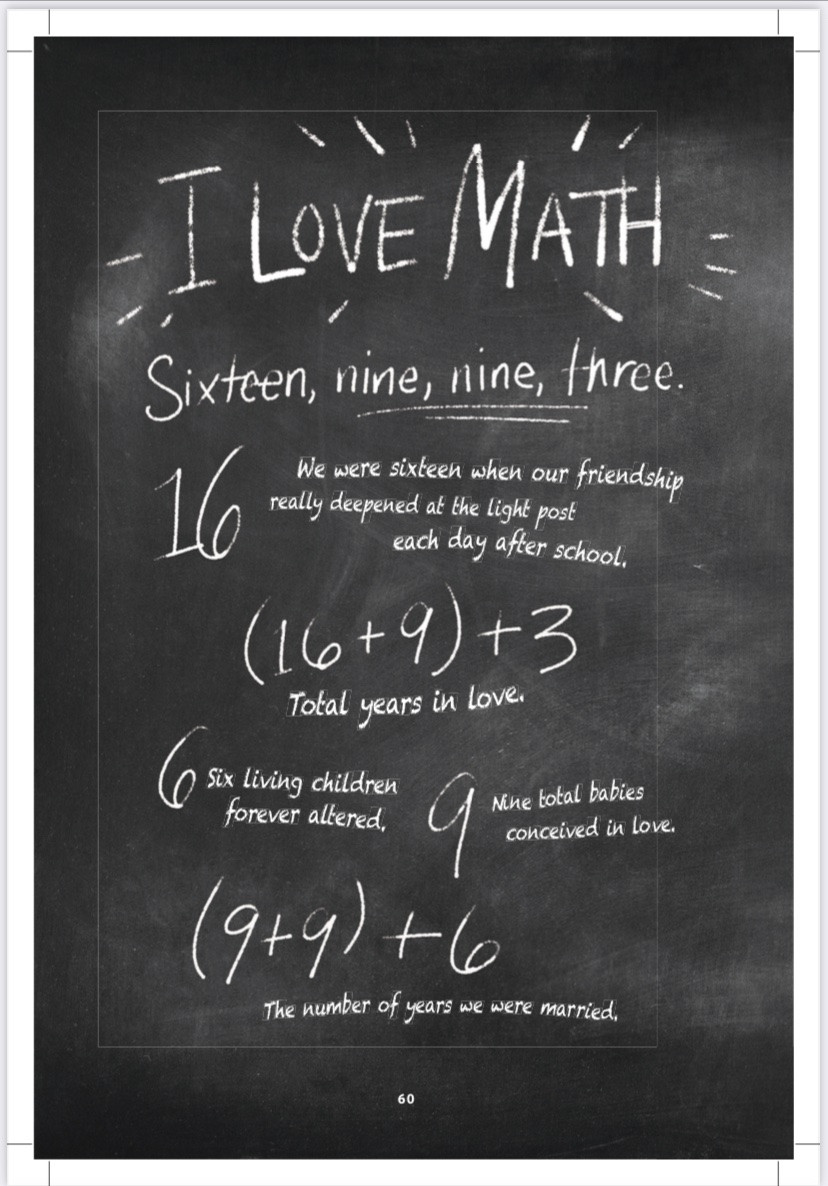 I LOVE MATH
Sixteen, nine, nine, three.
16
We were sixteen when our friendship
really deepened at the light post
each day after school.
(16+9)+3
Total years in love.
6
Six living children
forever altered.
9
Nine total babies
conceived in love.
(9+9)+6
The number of years we were married.
60